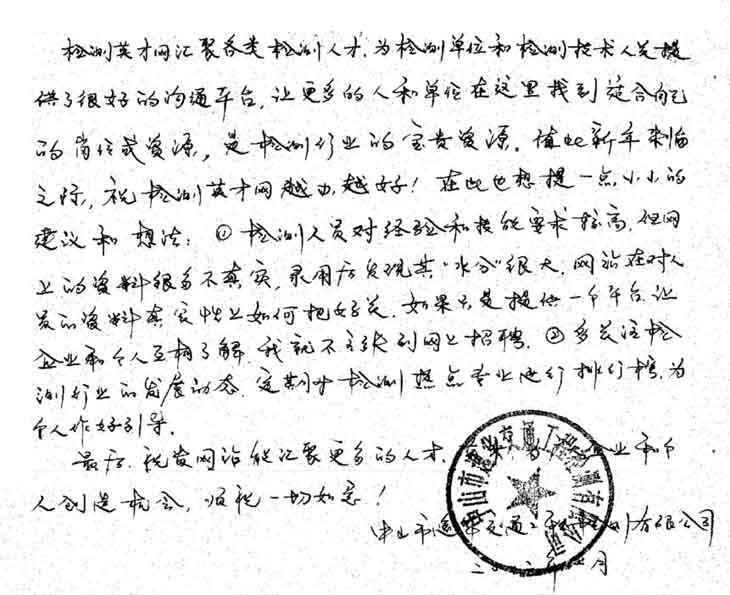 检测英才网汇聚各类检测人才,为检测单位和检测技术人员提
供了很好的沟通平台,让更多的人和单位在这里找到适合自己
的岗位或资源,是检测行业的宝贵资源。值此新年来临
之际,祝检测英才网越办越好!在此也想提一点小小的
建议和想法:①检测人员对经验和技能要求较高,但网
上的资料很多不真实,录用后发现其“水分”很大,网站在对人
员的资料真实性上如何把好关,如果只是提供一个平台,让
企业和个人互相了解,我就不主张到网上招聘。②多关注检
测行业的发展动态,定期对检测热点专业进行排行榜,为
个人作好引导。
最后,祝贵网站能汇聚更多的人才,为企业和个
人创造机会,顺祝一切如意!
中山市建设交通工程检测有限公司
二〇一二年 月